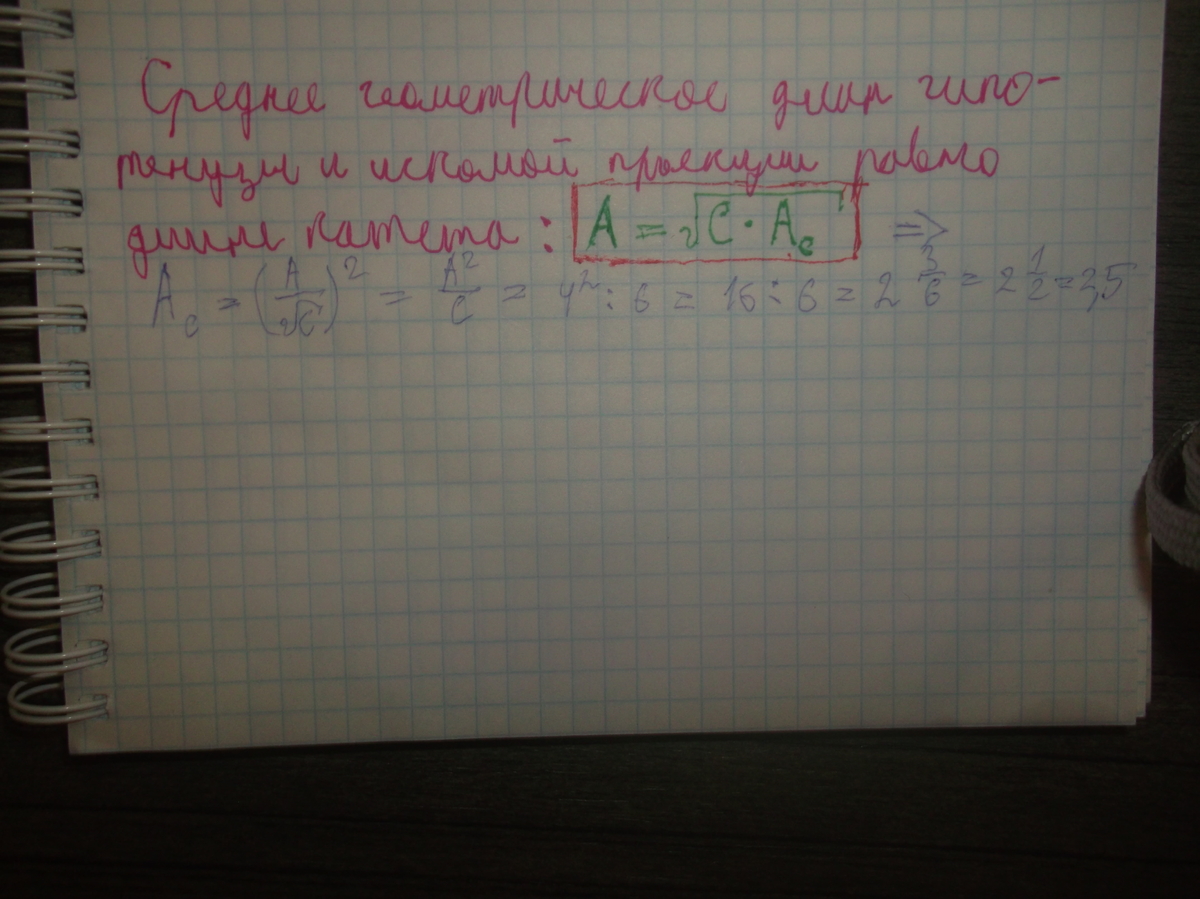 Среднее геометрическое длин гипо-
тенузы и искомой проекции равно
длине катета: A = √C · A_c ⇒
A_c = (A/√C)² = A²/C = 4² : 6 = 16 : 6 = 2 3/6 = 2 1/2 = 2,5